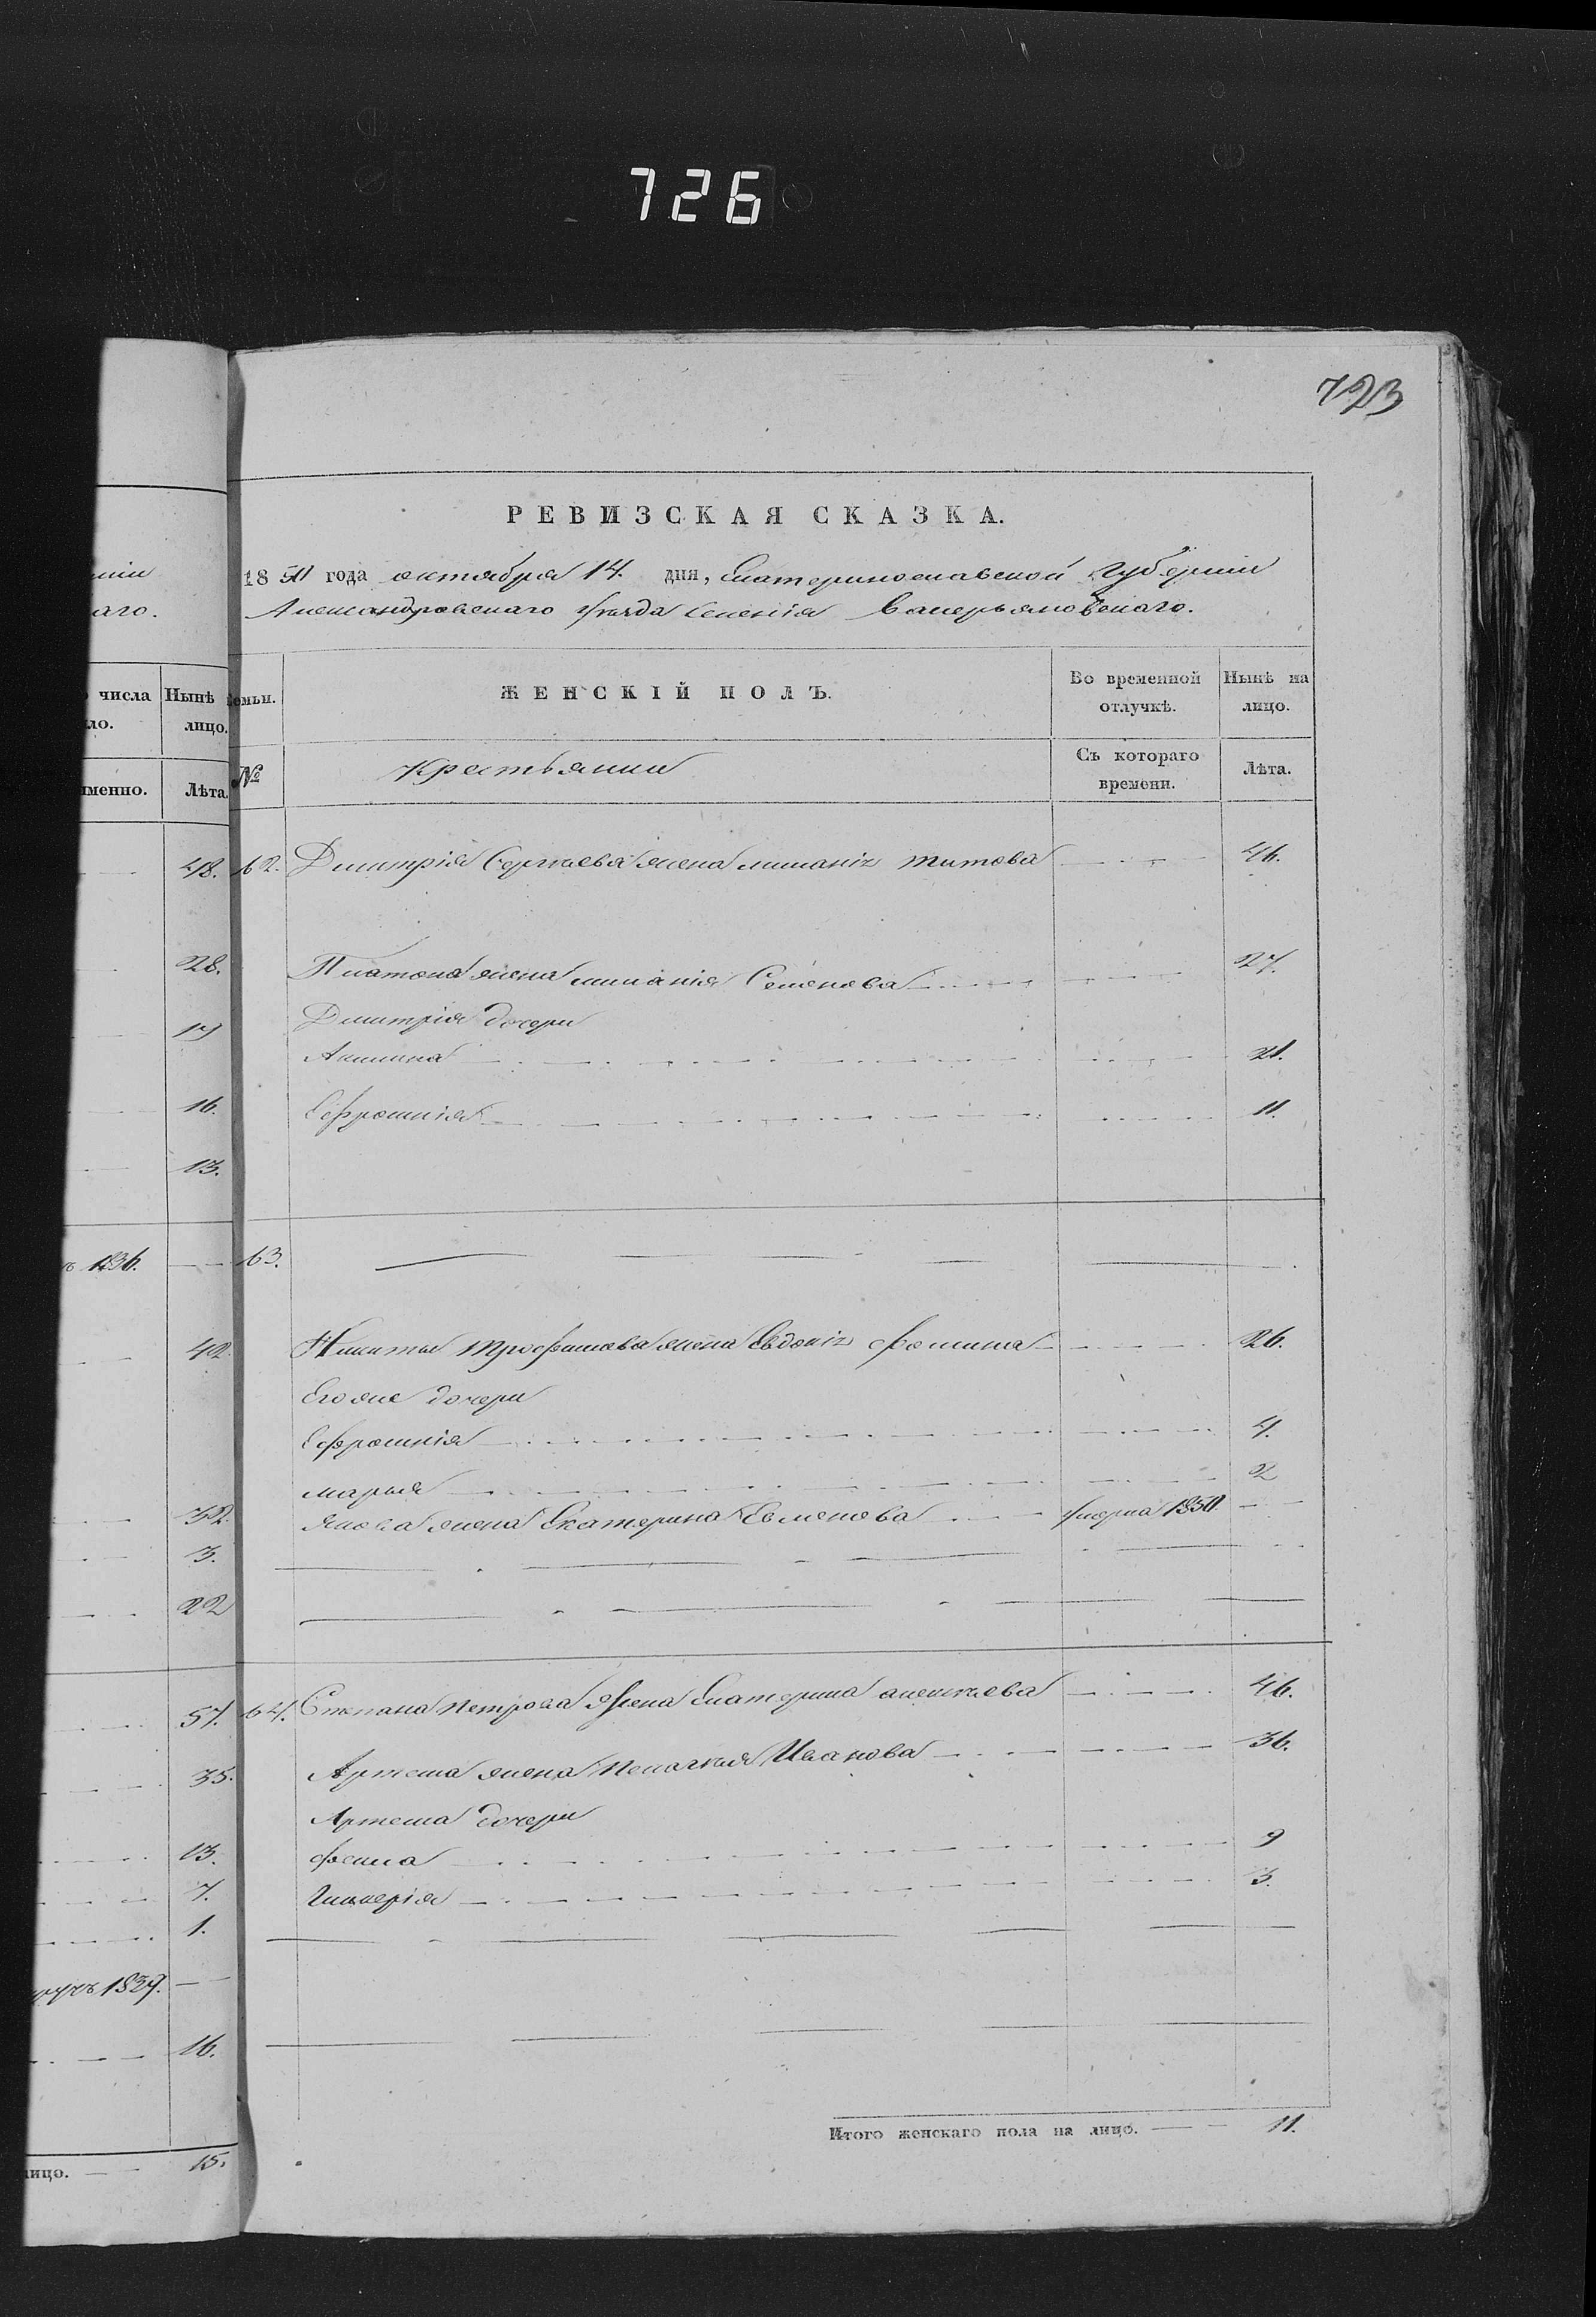 726
723
РЕВИЗСКАЯ СКАЗКА.
1850 года октября 14. дня, Екатеринославской Губернии
Александровскаго уезда Селенія Валерьяновскаго.
аго.
числа
ло.
Нынѣ
лицо.
именно.
Лѣта.
семьи.
ЖЕНСКІЙ ПОЛЪ.
Во временной
отлучкѣ.
Нынѣ на
лицо.
№
Крестьянии
Съ котораго
времени.
Лѣта.
48.
62. Дмитрія Сергиева жена миланія титова 46.
28.
Платона жена миланія Семенова 27.
Дмитрія дочери
17
Акилина 21.
16.
Ефросинія 11.
13.
1836.
63.
42.
Никиты трофимова жена Евдокія фомина 26.
Егоже дочери
Ефросинія 4.
марья 2
32.
Якова жена Екатерина Евменова умерла 1850
3.
22
57.
64. Степана петрова жена Екатерина алексиева 46.
35.
Артема жена пелагия Иванова 36.
Артема дочери
13.
фекла 9
7.
Гликерія 3.
1.
1839.
16.
Итого женскаго пола на лицо. 11.
лицо. 15.